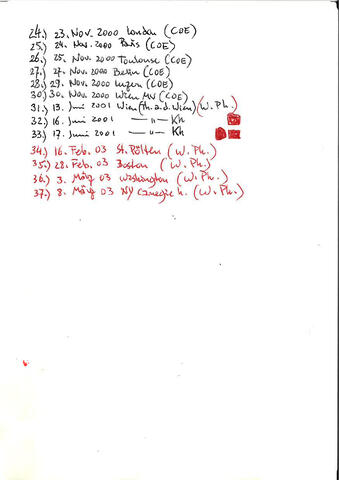 24.) 23. Nov. 2000 London (COE)
25.) 24. Nov. 2000 Paris (COE)
26.) 25. Nov. 2000 Toulouse (COE)
27.) 27. Nov. 2000 Berlin (COE)
28.) 29. Nov. 2000 Luzern (COE)
30.) 30. Nov. 2000 Wien MV (COE)
31.) 13. Juni 2001 Wien (Th. a. d. Wien) (W. Ph.)
32.) 16. Juni 2001 — " — Kh
33.) 17. Juni 2001 — " — Kh
34.) 16. Feb. 03 St. Pölten (W. Ph.)
35.) 28. Feb. 03 Boston (W. Ph.)
36.) 3. März 03 Washington (W. Ph.)
37.) 8. März 03 NY Carnegie h. (W. Ph.)